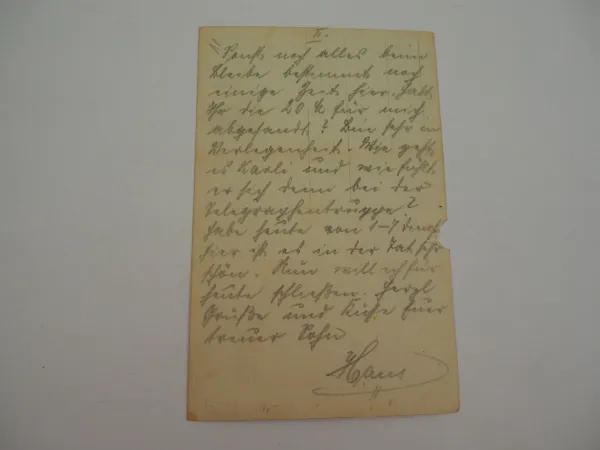 II.
Sonst noch alles beim
bleibe bestimmt noch
einige Zeit hier. Habt
Ihr die 20 K für mich
abgesandt? Bin sehr in
Verlegenheit. Wie geht
es Karli und wie fühlt
er sich denn bei der
Telegraphentruppe?
Habe heute von 1-7 Dienst
hier ist es in der Tat sehr
schön. Nun will ich für
heute schließen. Herzl
Grüße und Küße Euer
treuer Sohn
Hans